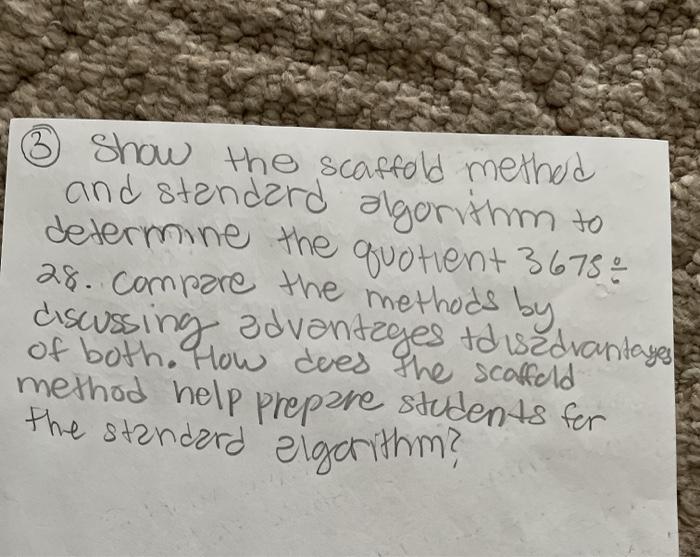 ③ Show the scaffold method
and standard algorithm to
determine the quotient 3678÷
28. compare the methods by
discussing advantages + disadvantages
of both. How does the scaffold
method help prepare students for
the standard algorithm?